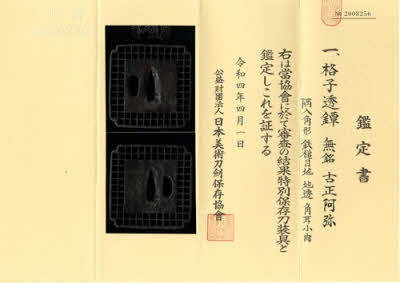 № 2008256
鑑定書
一、格子透鐔 無銘 古正阿弥
隅入角形 鉄槌目地 地透 角耳小肉
右は當協會に於て審査の結果特別保存刀装具と
鑑定しこれを証する
令和四年四月一日
公益財団法人日本美術刀剣保存協會